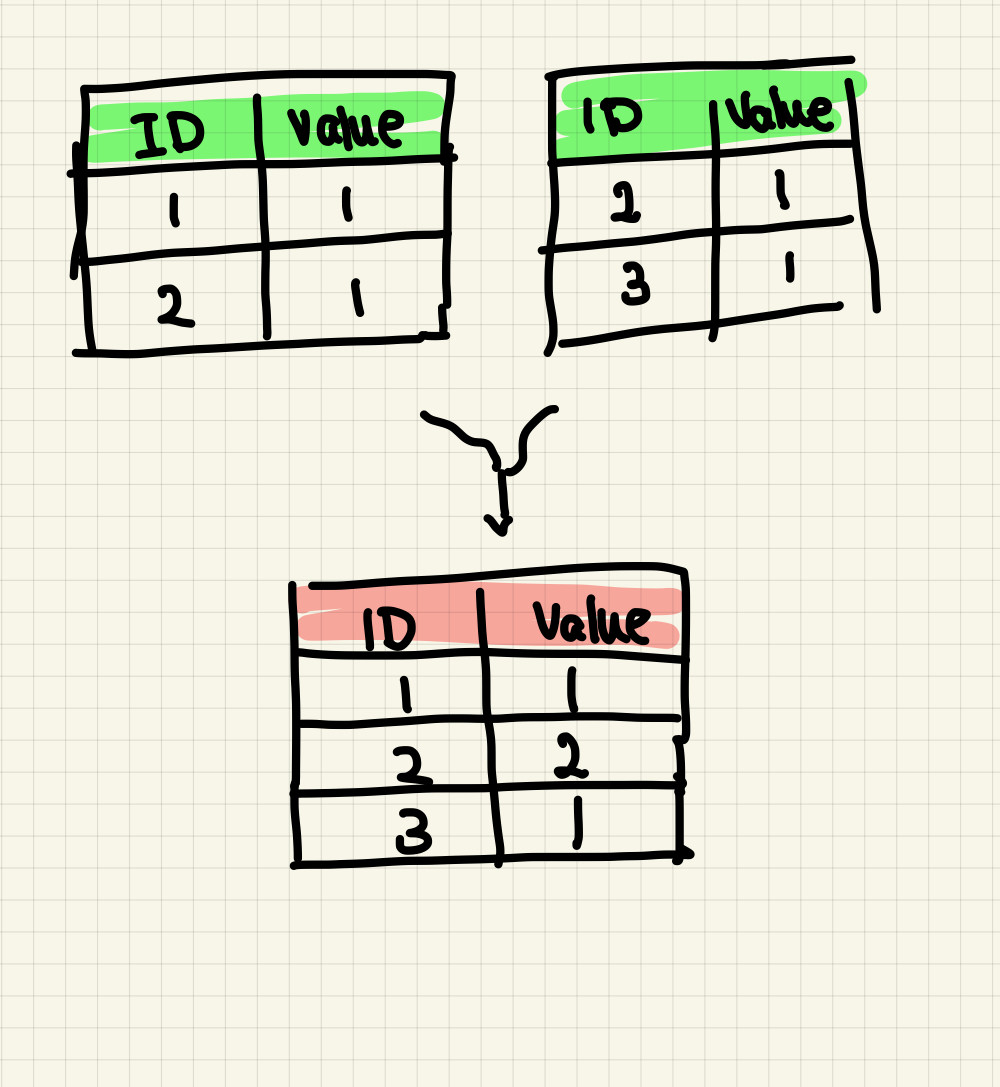 ID Value
1 1
2 1
ID Value
2 1
3 1
ID Value
1 1
2 2
3 1